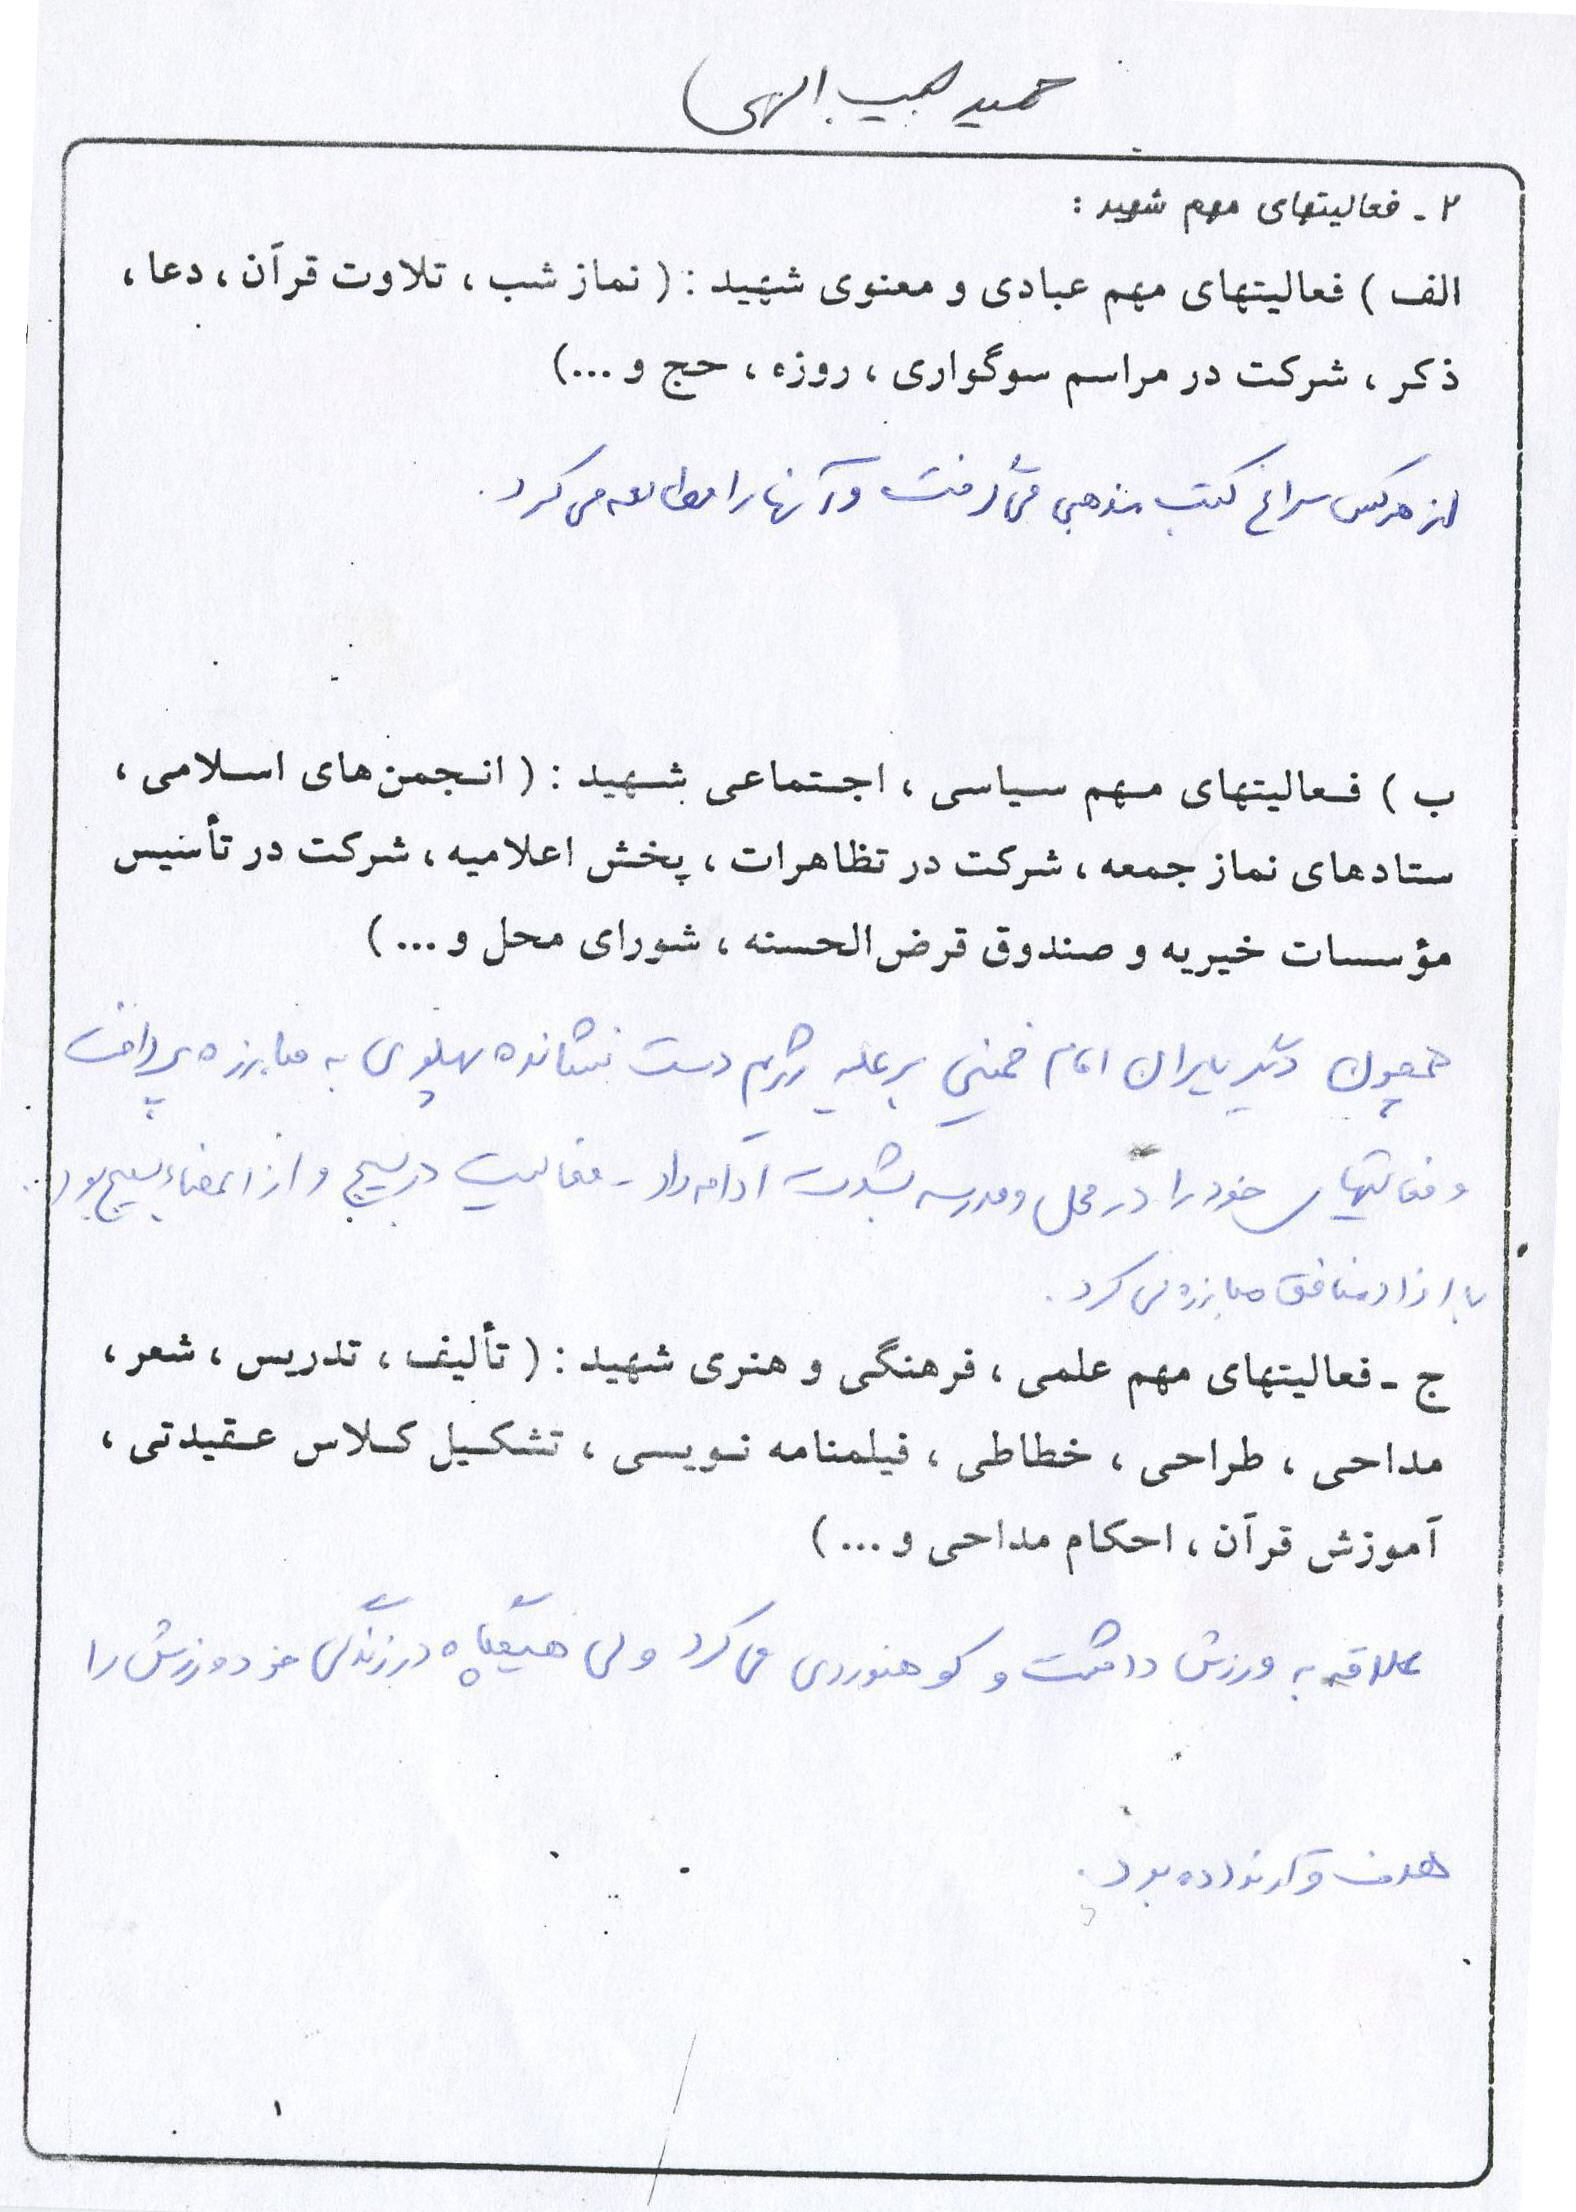 حمید حبیب الهی
۲ - فعالیتهای مهم شهید :
الف ) فعالیتهای مهم عبادی و معنوی شهید : ( نماز شب ، تلاوت قرآن ، دعا ،
ذکر ، شرکت در مراسم سوگواری ، روزه ، حج و ...)
از هر کس سراغ کتب مذهبی می گرفت و آنها را مطالعه می کرد .
ب ) فعالیتهای مهم سیاسی ، اجتماعی شهید : ( انجمن‌های اسلامی ،
ستادهای نماز جمعه ، شرکت در تظاهرات ، پخش اعلامیه ، شرکت در تأسیس
مؤسسات خیریه و صندوق قرض‌الحسنه ، شورای محل و ... )
همچون دیگر یاران امام خمینی بر علیه رژیم دست نشانده پهلوی به مبارزه پرداخت
و فعالیتهای خود را در محل و مدرسه بشدت ادامه داد - فعالیت در بسیج و از اعضاء بسیج بود
با افراد منافق مبارزه می کرد .
ج - فعالیتهای مهم علمی ، فرهنگی و هنری شهید : ( تألیف ، تدریس ، شعر ،
مداحی ، طراحی ، خطاطی ، فیلمنامه نویسی ، تشکیل کلاس عقیدتی ،
آموزش قرآن ، احکام مداحی و ... )
علاقه به ورزش داشت و کوهنوردی می کرد ولی هیچگاه در زندگی خود ورزش را
هدف قرار نداده بود .
۱